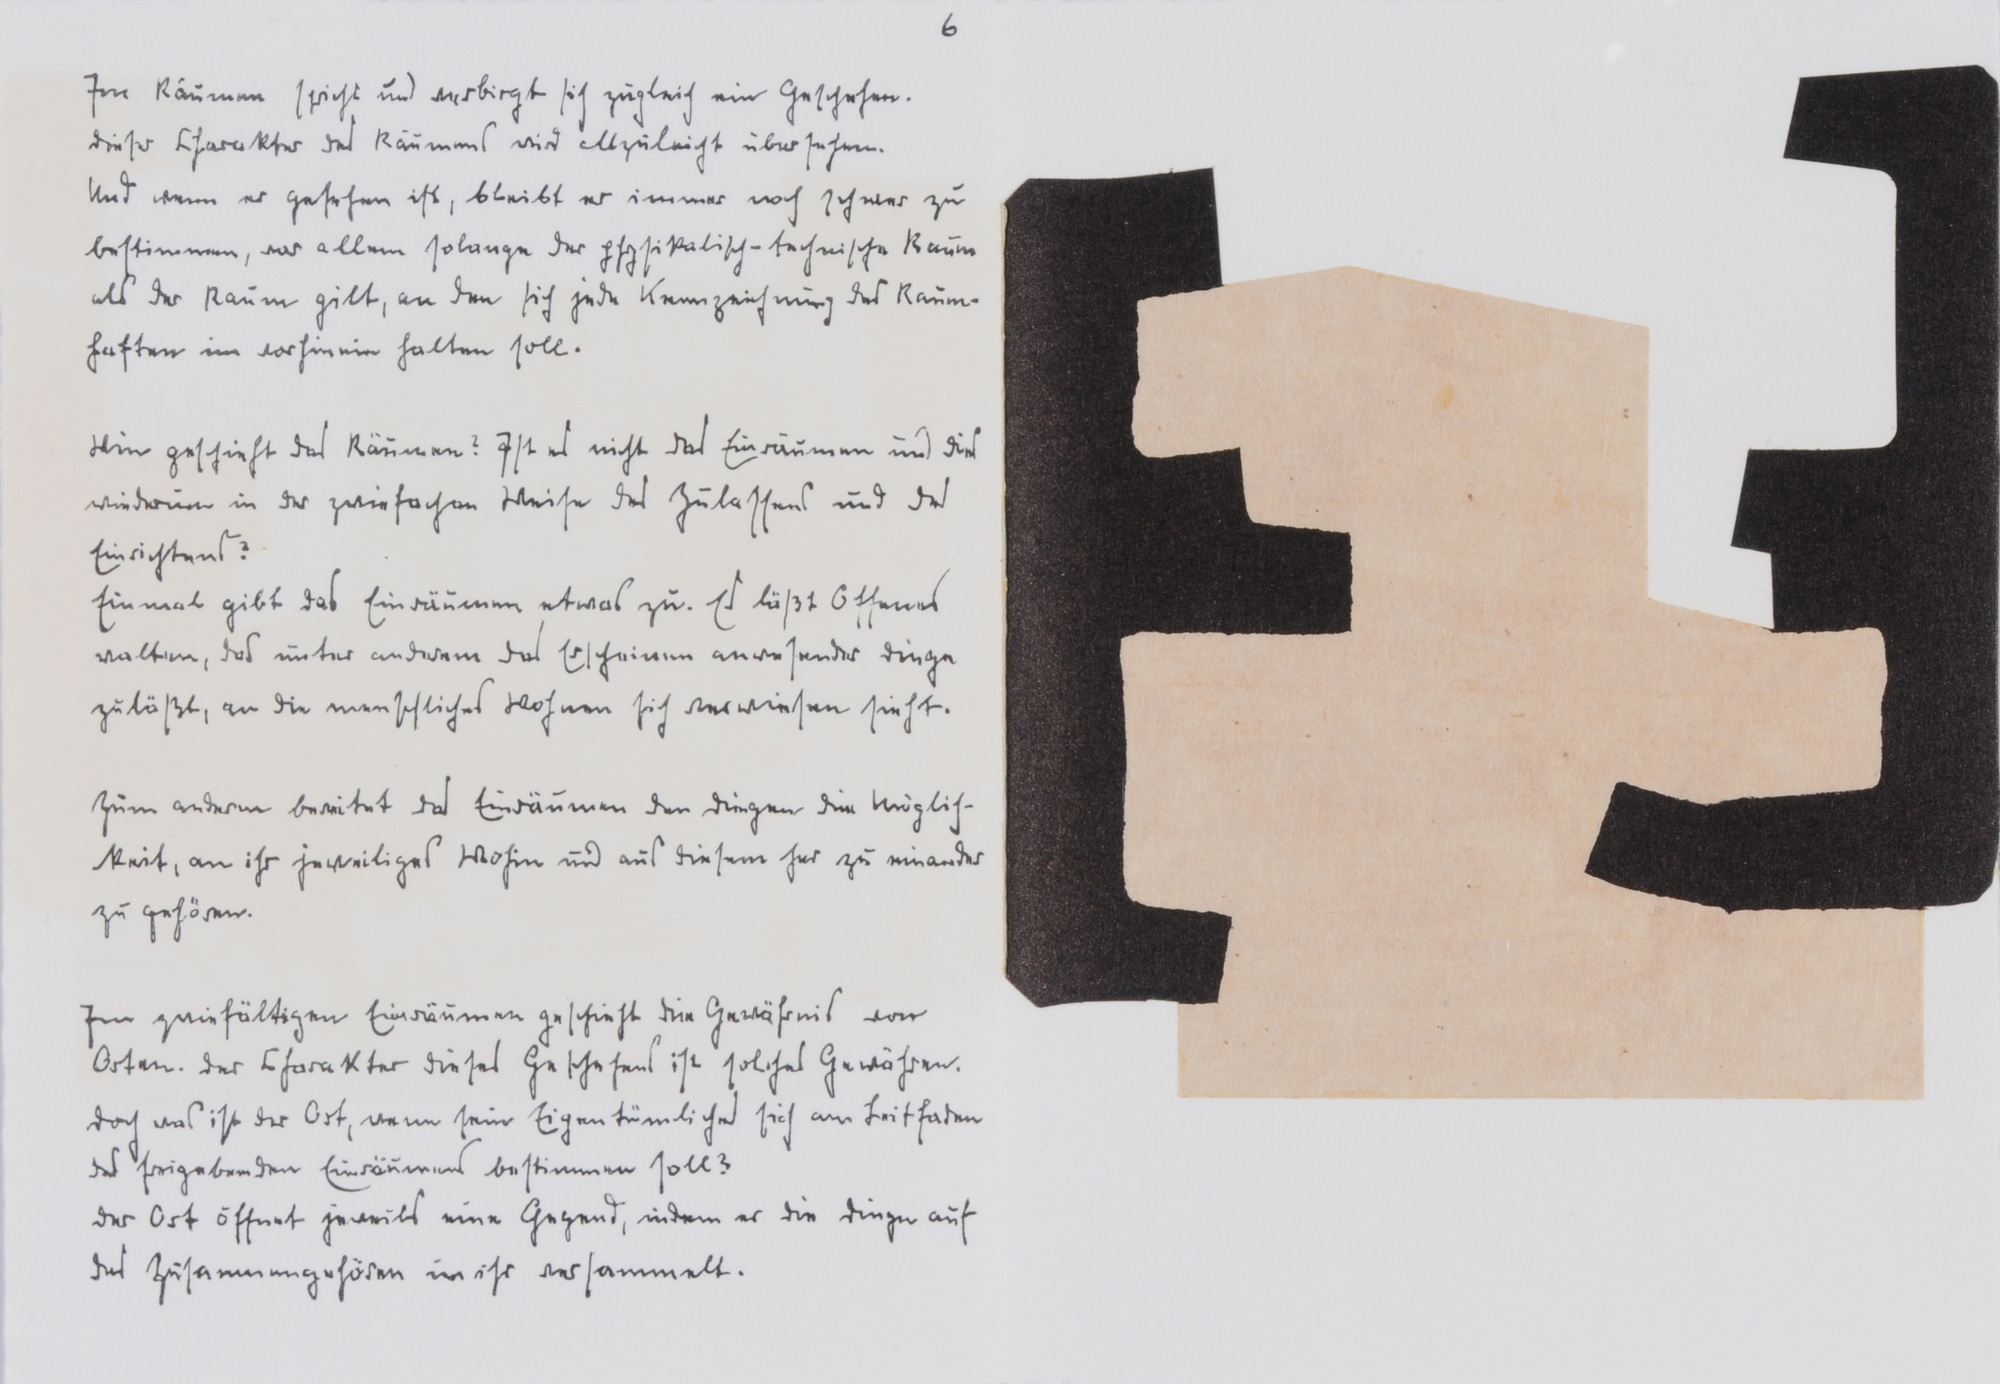 6
Im Räumen spricht und verbirgt sich zugleich ein Geschehen.
dieser Charakter des Räumens wird allzuleicht übersehen.
Und wenn er gesehen ist, bleibt er immer noch schwer zu
bestimmen, vor allem solange der physikalisch-technische Raum
als der Raum gilt, an den sich jede Kennzeichnung des Raum-
haften im vorhinein halten soll.
Wie geschieht das Räumen? Ist es nicht das Einräumen und dies
wiederum in der zwiefachen Weise des Zulassens und des
Einrichtens?
Einmal gibt das Einräumen etwas zu. Es läßt Offenes
walten, das unter anderem das Erscheinen anwesender dinge
zuläßt, an die menschliches Wohnen sich verwiesen sieht.
Zum andern bereitet das Einräumen den dingen die Möglich-
keit, an ihr jeweiliges Wohin und aus diesem her zu einander
zu gehören.
Im zwiefältigen Einräumen geschieht die Gewährnis von
Orten. der Charakter dieses Geschehens ist solches Gewähren.
doch was ist der Ort, wenn sein Eigentümliches sich am Leitfaden
des freigebenden Einräumens bestimmen soll?
der Ort öffnet jeweils eine Gegend, indem er die dinge auf
das Zusammengehören in ihr versammelt.